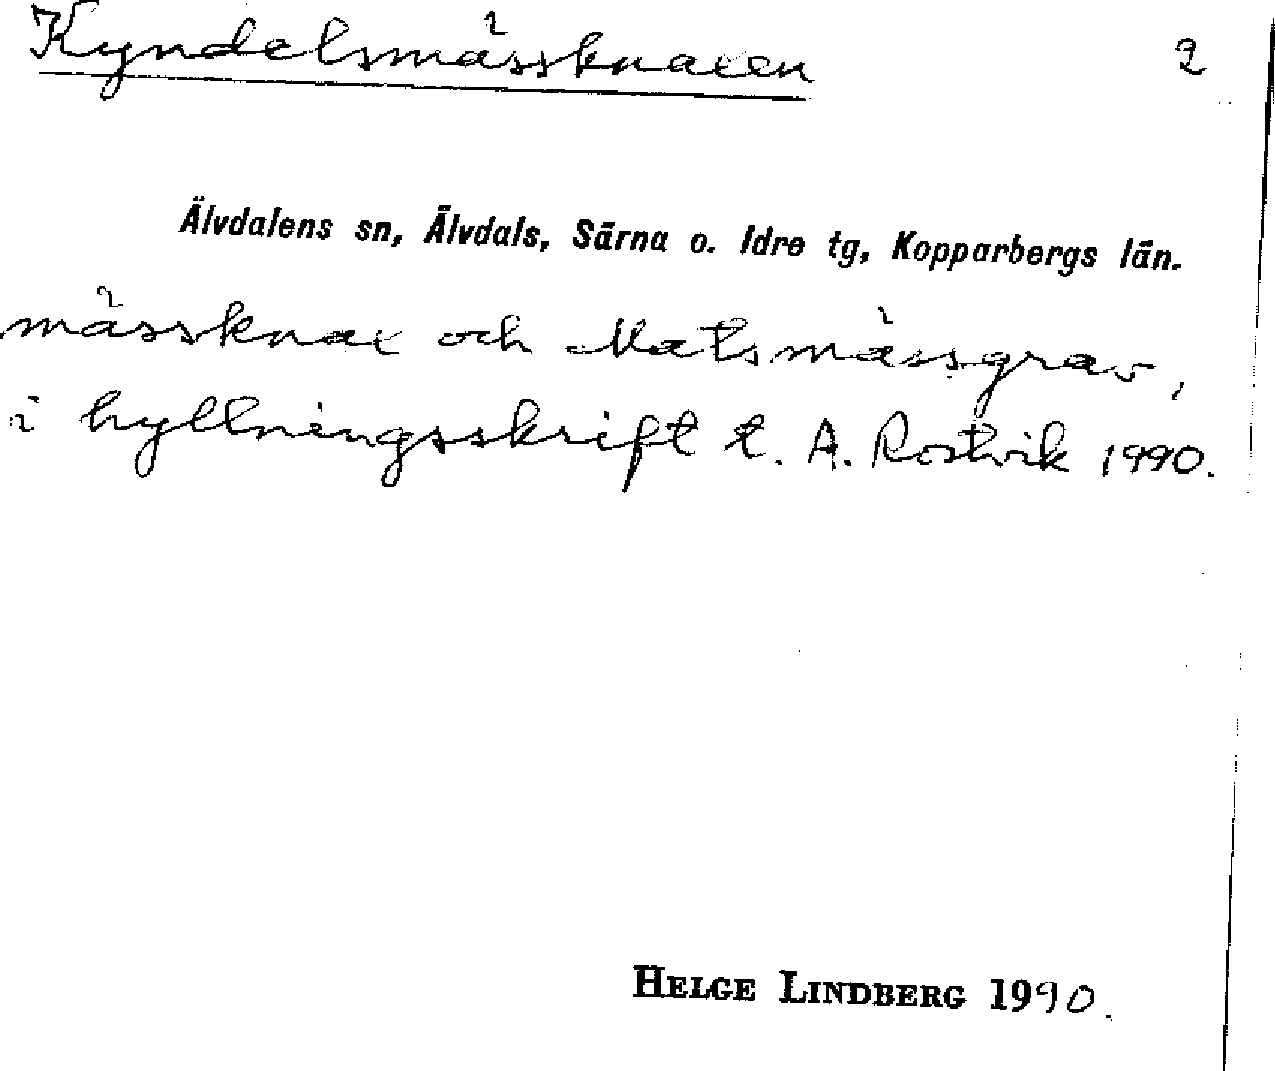 Kyndelsmässknallen 2
Älvdalens sn, Älvdals, Särna o. Idre tg, Kopparbergs län.
mässknal och Matsmässgrav,
i hyllningsskrift t. A. Rostvik 1990.
HELGE LINDBERG 1990.